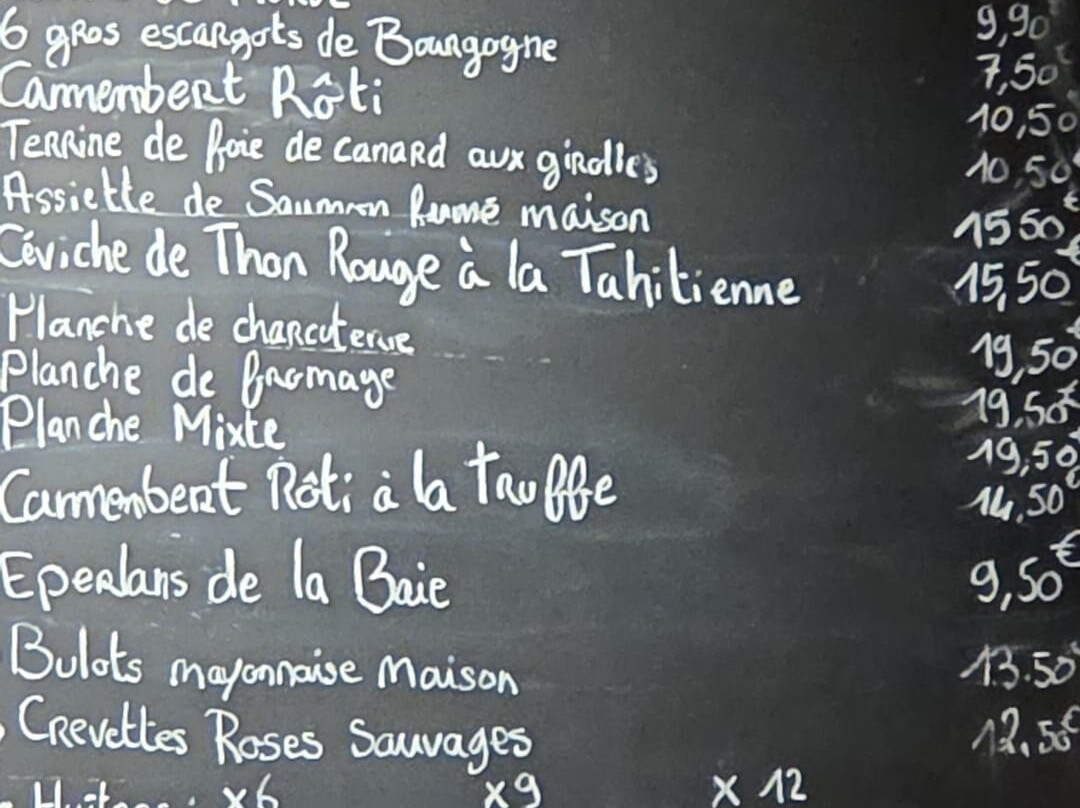 9,90
6 gros escargots de Bourgogne 7,50€
Camembert Rôti 10,50
Terrine de foie de canard aux girolles 10,50€
Assiette de Saumon fumé maison 15 50€
Céviche de Thon Rouge à la Tahitienne 15,50€
Planche de charcuterie 19,50€
Planche de fromage 19,50€
Planche Mixte 19,50€
Camembert Rôti à la truffe 14,50€
Eperlans de la Baie 9,50€
Bulots mayonnaise Maison 13.50€
Crevettes Roses Sauvages 12,50€
Huîtres : x6 x9 x 12